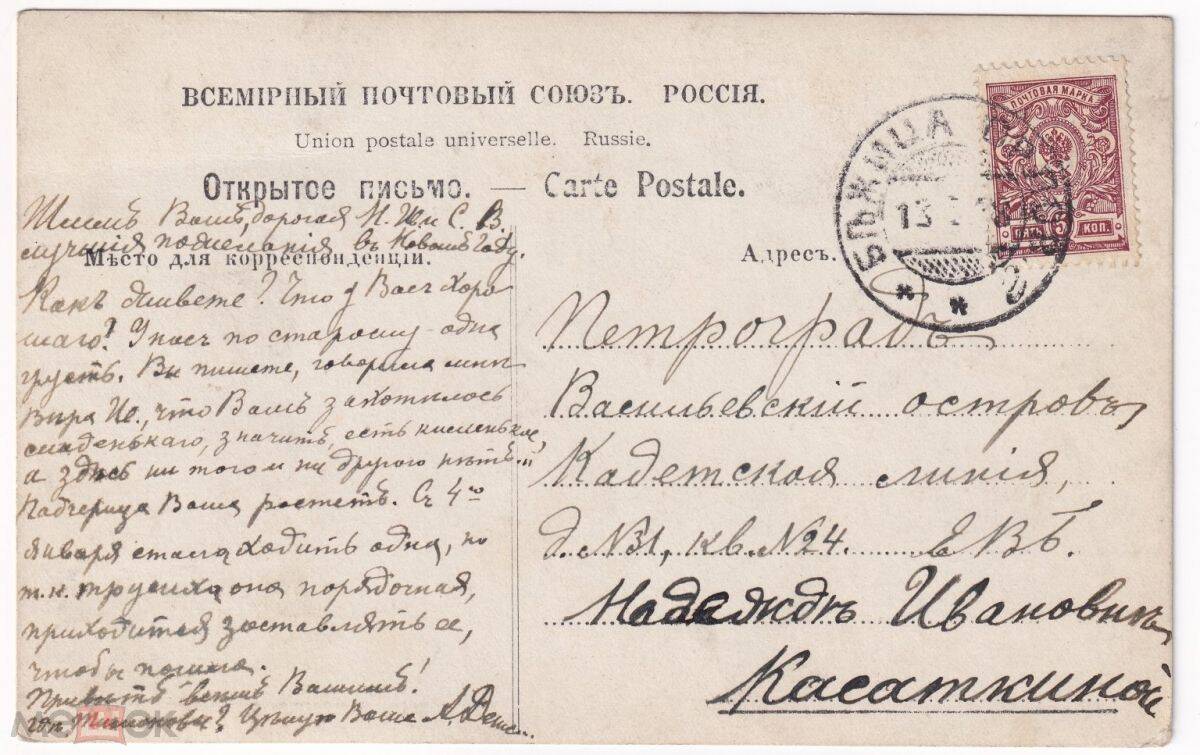 ВСЕМІРНЫЙ ПОЧТОВЫЙ СОЮЗЪ. РОССІЯ.
Union postale universelle. Russie.
Открытое письмо. — Carte Postale.
Мѣсто для корреспонденціи.
Адресъ.
ПОЧТОВАЯ МАРКА
5 КОП.
БѢЖИЦА
13
Шлемъ Вамъ, дорогая Н. И. и С. В.
лучшія пожеланія въ Новомъ Году.
Какъ живете? Что у Васъ хоро-
шаго? У насъ по старому – одна
грусть. Вы пишете, говорила мнѣ
Вѣра Ю., что Вамъ захотѣлось
сладенькаго, значитъ, есть кисленькое,
а здѣсь ни того и ни другого нѣтъ...
Падчерица Ваша растетъ. Съ 4го
января стала ходить одна, но
т.к. трусиха она порядочная,
приходится заставлять ее,
чтобы пошла.
Привѣтъ всемъ Вашимъ!
Цѣлую Ваша А.
Петроградъ
Васильевскій островъ,
Кадетская линія,
д. №31, кв. №24. ЕВБ.
Надеждѣ Ивановнѣ
Касаткиной